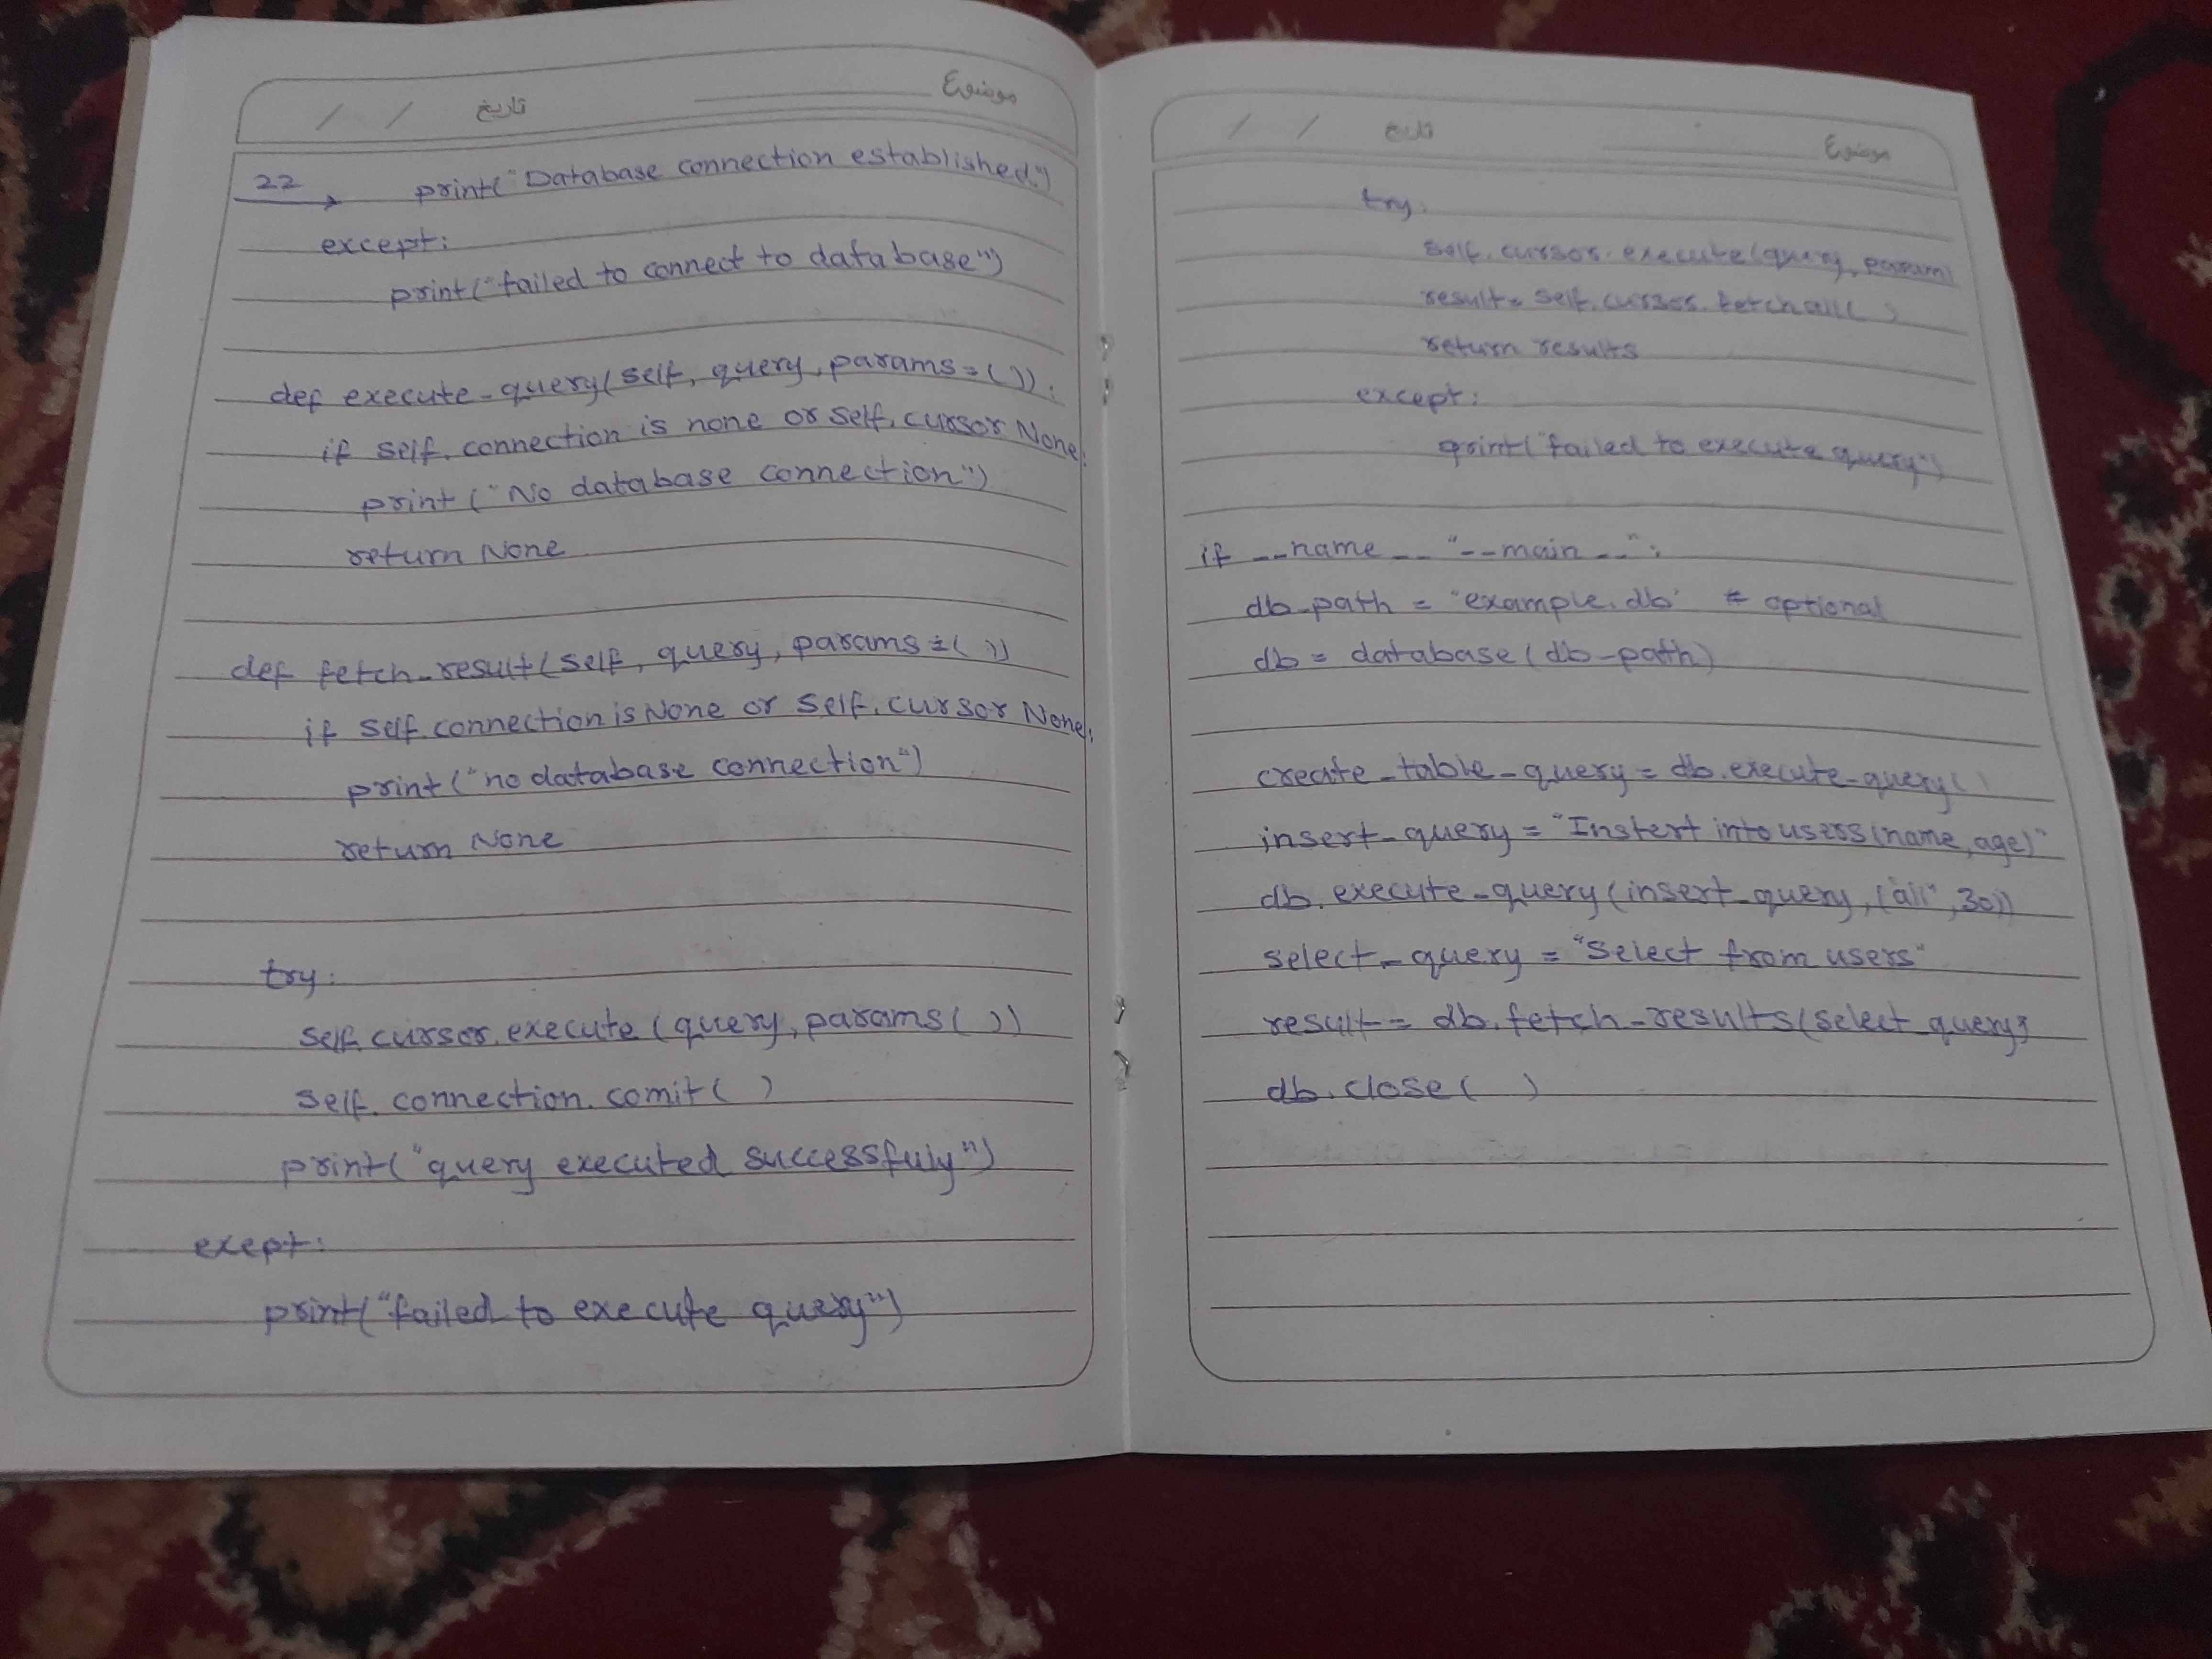 / / تاریخ
Evion
22 → print("Database connection established")
except:
print("failed to connect to database")
def execute_query(self, query, params=( )):
if self.connection is none or self.cursor None:
print("No database connection")
return None
def fetch_result(self, query, params=( ))
if self.connection is None or self.cursor None:
print("no database connection")
return None
try:
self.cursor.execute(query, params( ))
self.connection.comit( )
print("query executed successfuly")
exept:
print("failed to execute query")
/ / تاریخ
Evion
try:
self.cursor.execute(query, param)
result = self.cursor.fetchall( )
return results
except:
print("failed to execute query")
if __name__ "__main__":
db_path = "example.db' # optional
db = database(db_path)
create_table_query = db.execute_query( )
insert_query = "Instert into users(name, age)"
db.execute_query(insert_query, ('ali", 30))
select_query = "Select from users"
result = db.fetch_results(select_query)
db.close( )